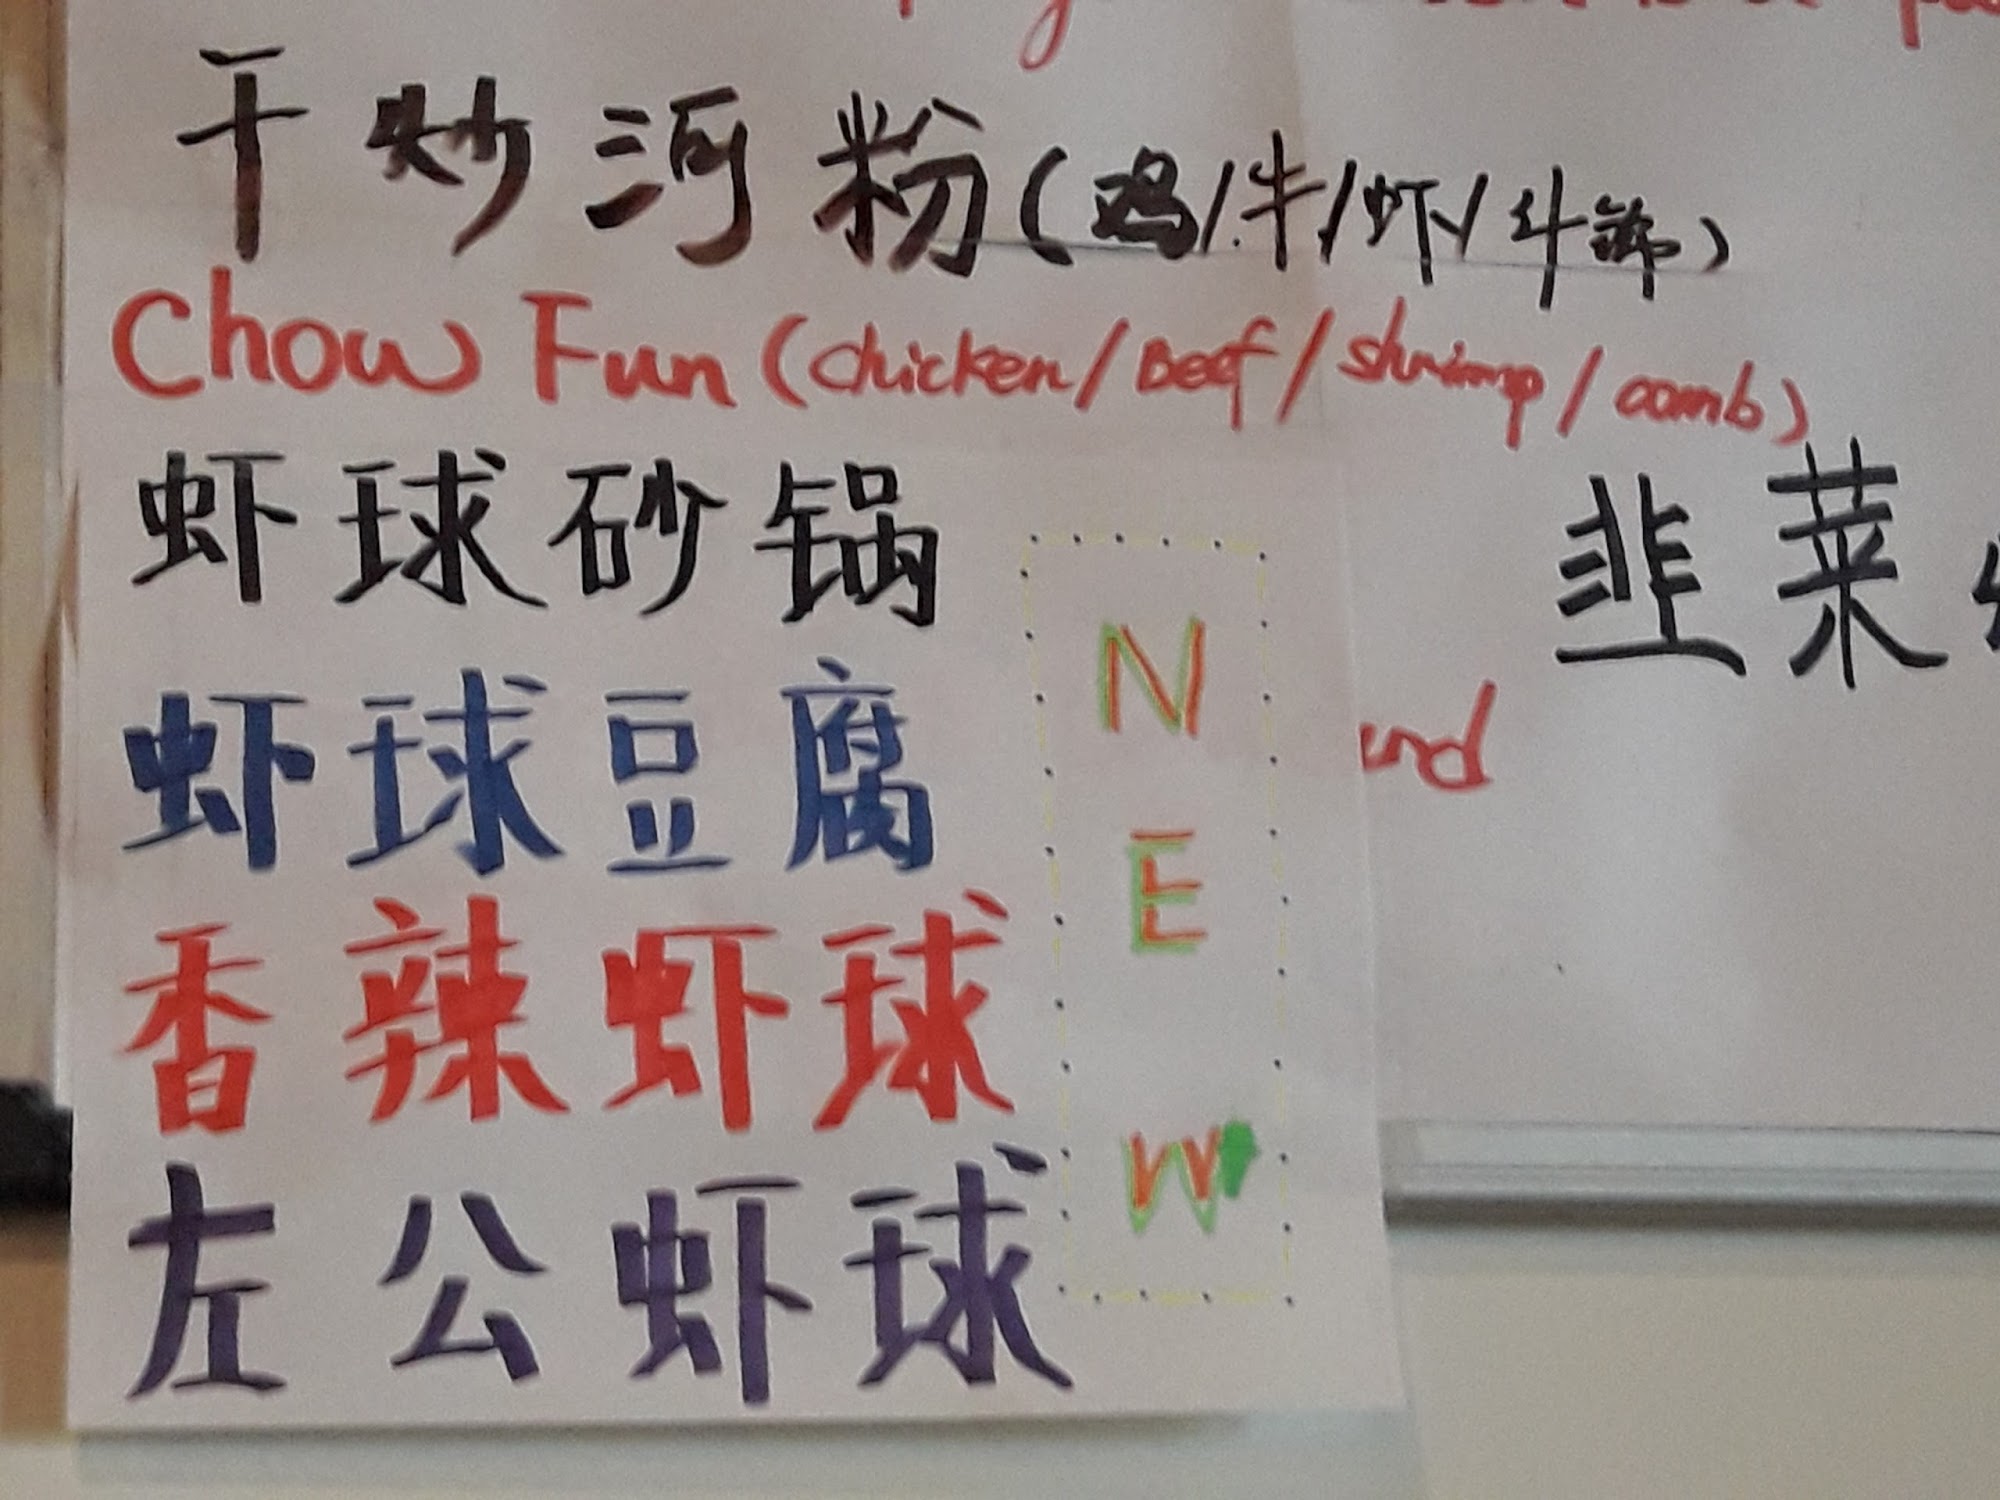 干炒河粉(鸡/牛/虾/什锦)
Chow Fun (chicken/Beef/shrimp/comb)
虾球砂锅
韭菜
虾球豆腐
香辣虾球
左公虾球
NEW